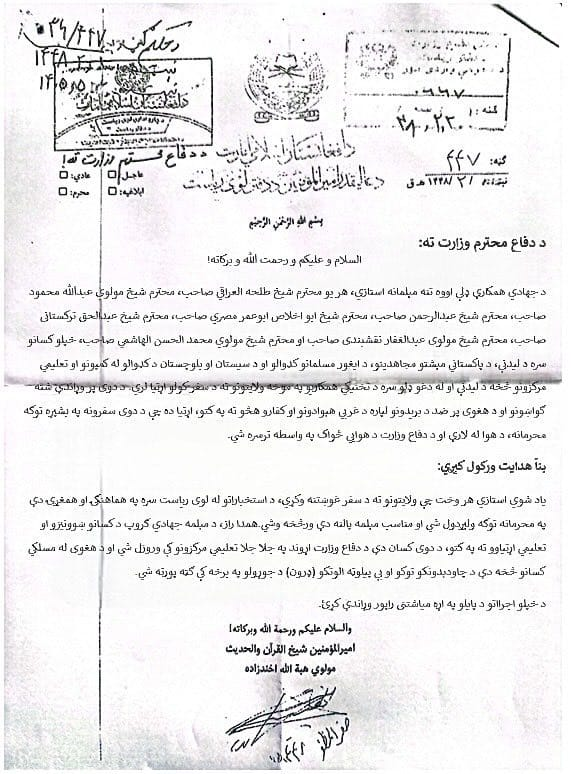 ۳۶/۴۴۷
۱۴۴۸
۱۴۰۵
۰۶۶۷
ګڼه:
د افغانستان اسلامي امارت
د عاليقدر اميرالمؤمنين د دفتر لوی رياست
ګڼه: ۴۴۷
۱۴۴۸/۲/ هـ ق
د دفاع محترم وزارت ته!
عاجل: عادي:
ابلاغيه: محرم:
بِسْمِ اللهِ الرَّحْمٰنِ الرَّحِيْمِ
د دفاع محترم وزارت ته:
السلام و عليکم و رحمت الله و برکاته!
د جهادي همکارۍ ډلې اووه تنه مېلمانه استازي، هر يو محترم شيخ طلحه العراقي صاحب، محترم شيخ مولوي عبدالله محمود
صاحب، محترم شيخ عبدالرحمن صاحب، محترم شيخ ابو اخلاص ابوعمر مصري صاحب، محترم شيخ عبدالحق ترکستاني
صاحب، محترم شيخ مولوي عبدالغفار نقشبندی صاحب او محترم شيخ مولوي محمد الحسن الهاشمي صاحب، خپلو کسانو
سره د ليدنې، د پاکستاني مېشتو مجاهدينو، د ايغور مسلمانو کډوالو او د سيستان او بلوچستان د کډوالو له کمپونو او تعليمي
مرکزونو څخه د ليدنې او له دغو ډلو سره د تخنيکي همکاريو په موخه ولايتونو ته د سفر کولو اړتيا لري. د دوی پر وړاندې شته
ګواښونو او د هغوی پر ضد د بريدونو لپاره د غربي هېوادونو او کفارو هڅو ته په کتو، اړتيا ده چې د دوی سفرونه په بشپړه توګه
محرمانه، د هوا له لارې او د دفاع وزارت د هوايي ځواک په واسطه ترسره شي.
بناً هدايت ورکول کېږي:
ياد شوي استازي هر وخت چې ولايتونو ته د سفر غوښتنه وکړي، د استخباراتو له لوی رياست سره په هماهنګۍ او همغږۍ، دې
په محرمانه توګه ولېږدول شي او مناسب مېلمه پالنه دې ورڅخه وشي.همدا راز، د مېلمه جهادي ګروپ د کسانو ښوونيزو او
تعليمي اړتياوو ته په کتو، د دوی کسان دې د دفاع وزارت اړوند په جلا جلا تعليمي مرکزونو کې وروزل شي او د هغوی له مسلکي
کسانو څخه دې د چاودېدونکو توکو او بې پيلوټه الوتکو (ډرون) د جوړولو په برخه کې ګټه پورته شي.
د خپلو اجرااتو د پايلو په اړه مياشتنی راپور وړاندې کړئ.
والسلام عليکم ورحمة الله وبرکاته!
اميرالمؤمنين شيخ القرآن والحديث
مولوي هبة الله اخندزاده
صفر المظفر